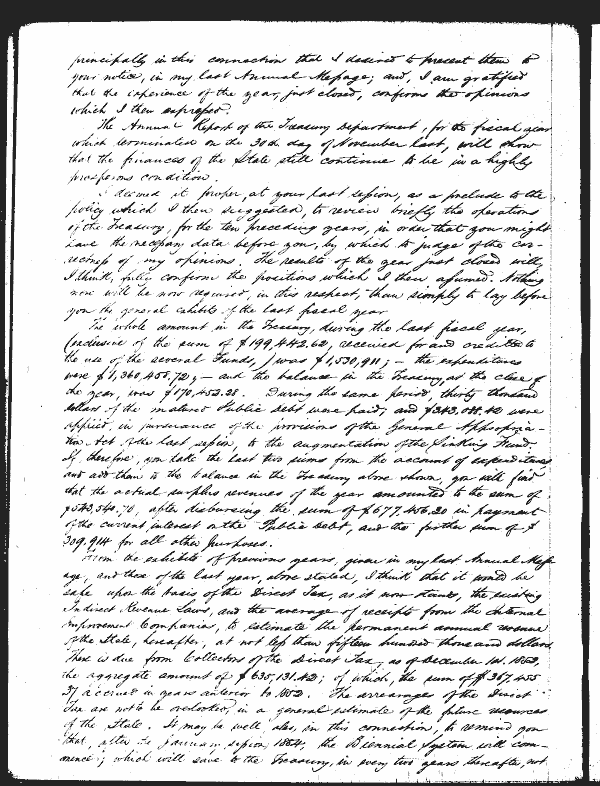 principally in this connection that I desired to present them to
your notice, in my last Annual Message; and, I am gratified
that the experience of the year, just closed, confirms the opinions
which I then expressed.
The Annual Report of the Treasury Department, for the fiscal year
which terminated on the 30th day of November last, will show
that the finances of the State still continue to be in a highly
prosperous condition.
I deemed it proper, at your last session, as a prelude to the
policy which I then suggested, to review briefly the operations
of the Treasury, for the ten preceding years, in order that you might
have the necessary data before you, by which to judge of the cor-
rectness of my opinions. The results of the year just closed will,
I think, fully confirm the positions which I then assumed. Nothing
now will be now required, in this respect, than simply to lay before
you the general exhibits of the last fiscal year
The whole amount in the Treasury, during the last fiscal year,
(exclusive of the sum of $199,442.62, received for and credited to
the use of the several Funds,) was $1,530,911; — the expenditures
were $1,360,458.72; — and the balance in the Treasury, at the close of
the year, was $170,452.28. During the same period, thirty thousand
dollars of the matured Public debt were paid, and $343,088.42 were
applied, in pursuance of the provisions of the General Appropria-
tion Act of the last session, to the augmentation of the Sinking Fund.
If, therefore, you take the last two sums from the account of expenditures
and add them to the balance in the Treasury above shown, you will find
that the actual surplus revenues of the year amounted to the sum of
$543,540.70, after disbursing the sum of $677,456.20 in payment
of the current interest on the Public Debt, and the further sum of $
309,914 for all other purposes.
From the exhibits of previous years, given in my last Annual Mess-
age, and those of the last year, above stated, I think that it would be
safe upon the basis of the Direct Tax, as it now stands, the existing
Indirect Revenue Laws, and the average of receipts from the Internal
Improvement Companies, to estimate the permanent annual revenue
of the State, hereafter, at not less than fifteen hundred thousand dollars.
There is due from Collectors of the Direct Tax, as of December 1st, 1852,
the aggregate amount of $635,131.42; of which, the sum of $367,455
37 accrued in years anterior to 1852. The arrearages of the Direct
Tax are not to be overlooked, in a general estimate of the future resources
of the State. It may be well, also, in this connection, to remind you
that, after the January session, 1854, the Biennial System will com-
mence; which will save to the Treasury, in every two years thereafter, not